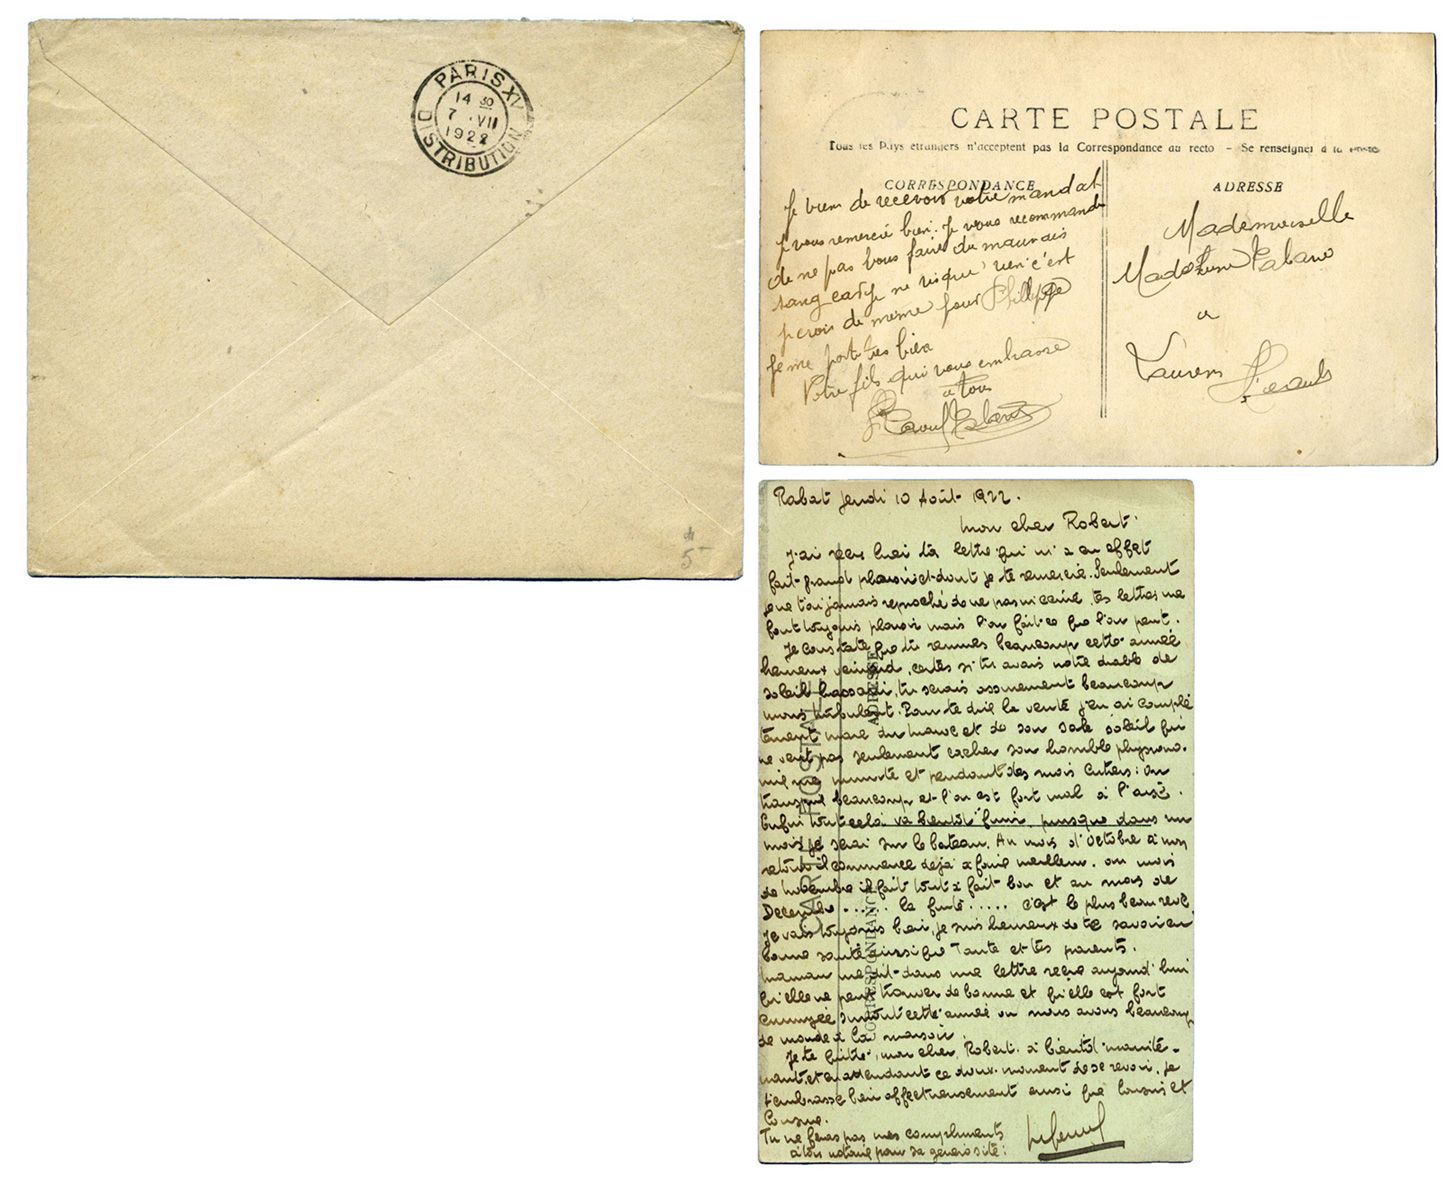 PARIS XV
14 30
7 . VII
1922
DISTRIBUTION
5-
CARTE POSTALE
Tous les Pays étrangers n'acceptent pas la Correspondance au recto - Se renseigner à la Poste
CORRESPONDANCE
ADRESSE
Je viens de recevoir votre mandat
Je vous remercie bien. Je vous recommande
de ne pas vous faire du mauvais
sang car je ne risque rien c'est
de meme pour Philippe
Je me porte tres bien
Votre fils qui vous embrasse
a tous
Raoul
Mademoiselle
a
Laurens
Herault
Rabat Jeudi 10 Août 1922.
mon cher Robert.
J'ai reçu hier ta lettre qui m'a en effet
fait grand plaisir et dont je te remercie. Seulement
je ne t'ai jamais reproché de ne pas m'écrire, tes lettres me
font toujours plaisir mais l'on fait ce que l'on peut.
Je constate que tu remues beaucoup cette année
heureux veinard, certes si tu avais notre diable de
soleil tu serais assurement beaucoup
moins turbulent. Pour te dire la vérité j'en ai complè
tement marre du maroc et de son sale soleil qui
ne veut pas seulement cacher son horrible physiono-
mie une minute et pendant des mois entiers: on
transpire beaucoup et l'on est fort mal à l'aise.
Enfin tout cela va bientôt finir, puisque dans un
mois je serai sur le bateau. Au mois d'Octobre à mon
retour il commence déjà à faire meilleur. au mois
de Novembre il fait tout à fait bon et au mois de
Décembre ...... la ..... c'est le plus beau reve
Je vais toujours bien, je suis heureux de te savoir en
bonne santé ainsi que Tante et tes parents.
Maman me dit dans une lettre reçue aujourd'hui
qu'elle ne peut trouver de bonne et qu'elle est fort
ennuyée surtout cette année ou nous avons beaucoup
de monde à la maison.
Je te quitte, mon cher Robert. à bientôt mainte-
nant, et en attendant ce doux moment de se revoir, je
t'embrasse bien affectueusement ainsi que Cousin et
Cousine.
Tu ne feras pas mes compliments
à ton notaire pour sa générosité:
CARTE POSTALE
CORRESPONDANCE
ADRESSE